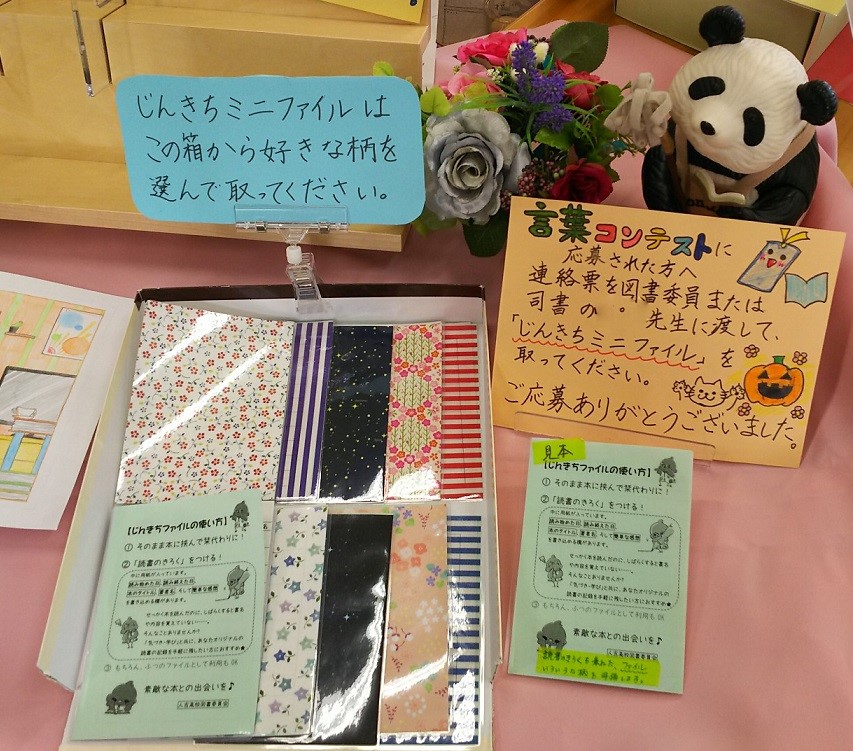 じんきちミニファイルは
この箱から好きな柄を
選んで取ってください。
言葉コンテストに
応募された方へ
連絡票を図書委員または
司書の 。 先生に渡して、
「じんきちミニファイル」を
取ってください。
ご応募ありがとうございました。
【じんきちファイルの使い方】
① そのまま本に挟んで栞代わりに!
② 「読書のきろく」をつける!
中に用紙が入っています。
読み始めた日、読み終えた日、
本のタイトル、著者名、そして簡単な感想
を書き込める欄があります。
せっかく本を読んだのに、しばらくすると書名
や内容を覚えていない……。
そんなことありませんか?
「気づき・学び」と共に、あなたオリジナルの
読書の記録を手軽に残したい方におすすめ★
③ もちろん、ふつうのファイルとして利用も OK
素敵な本との出会いを♪
人吉高校図書委員会
見本
【じんきちファイルの使い方】
① そのまま本に挟んで栞代わりに!
② 「読書のきろく」をつける!
中に用紙が入っています。
読み始めた日、読み終えた日、
本のタイトル、著者名、そして簡単な感想
を書き込める欄があります。
せっかく本を読んだのに、しばらくすると書名
や内容を覚えていない……。
そんなことありませんか?
「気づき・学び」と共に、あなたオリジナルの
読書の記録を手軽に残したい方におすすめ★
③ もちろん、ふつうのファイルとして利用も OK
素敵な本との出会いを♪
人吉高校図書委員会
読書のきろくを兼ねた、ファイル
いろいろな柄を準備します。